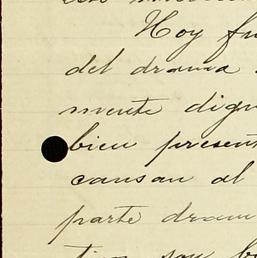 Hoy fu
del drama
mente dign
bien present
causan al
parte dram